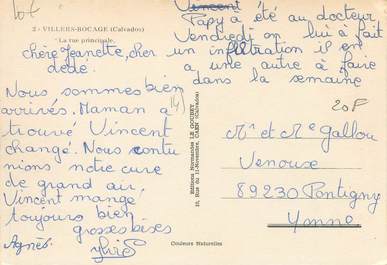 10F
2 - VILLERS-BOCAGE (Calvados)
La rue principale.
chère Jeanette, cher
dédé.
Nous sommes bien
arrivés. Maman a
trouvé Vincent
changé. Nous contu
nuons notre cure
de grand air,
Vincent mange
toujours bien
grosses bises
Agnès
Sylvie
Vincent
Papy a été au docteur
Vendredi on lui à fait
un infiltration il en
a une autre à faire
dans la semaine
14
Editions Normandes LE GOUBEY
10, Rue du 11-Novembre, CAEN (Calvados)
20F
Mr et Me Gallou
Venouse
89230 Pontigny
Yonne
Couleurs Naturelles